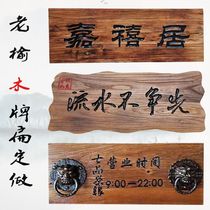 老榆木牌扁定做
嘉禧居
流水不争先
营业时间
9:00—22:00